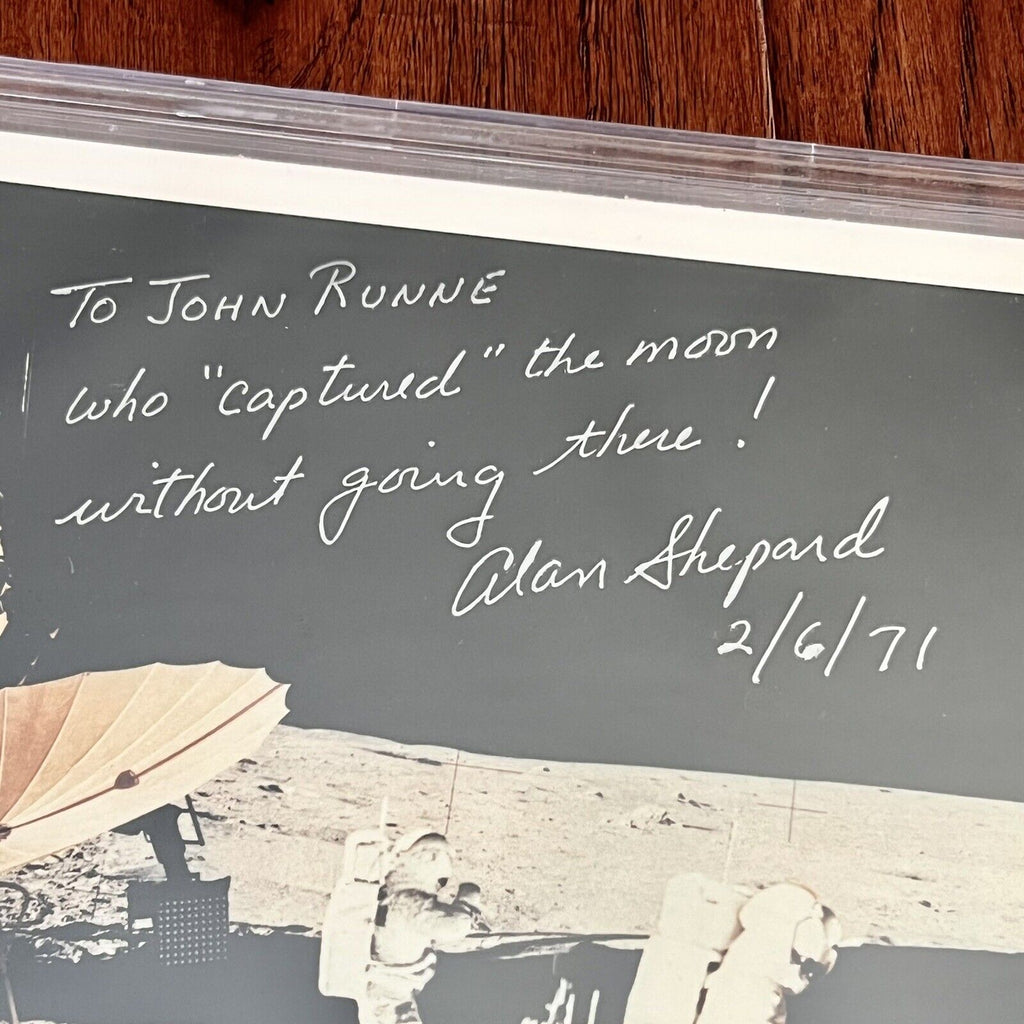 TO JOHN RUNNE
who "captured" the moon
without going there!
Alan Shepard
2/6/71